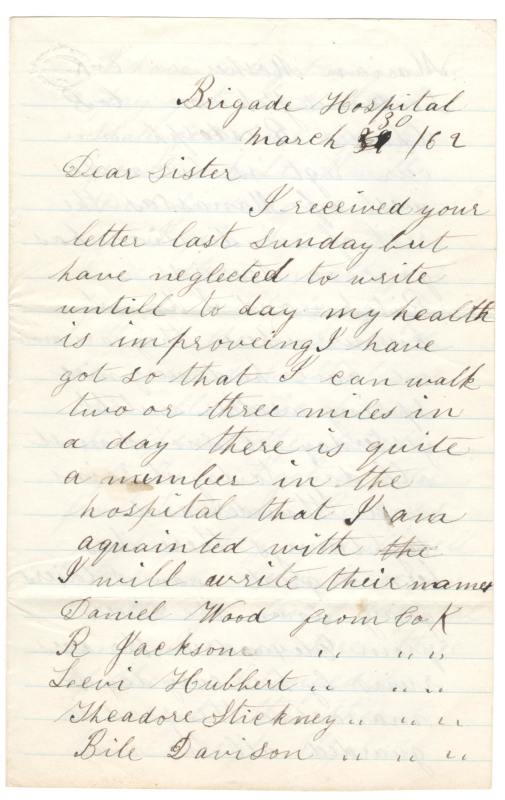 Brigade Hospital
March 30 /62
Dear Sister
I received your
letter last sunday but
have neglected to write
untill to day my health
is improveing I have
got so that I can walk
two or three miles in
a day there is quite
a member in the
hospital that I am
aquainted with the
I will write their names
Daniel Wood from Co K
R Jacksons " " "
Leevi Hubbert " " "
Theadore Stickney " " "
Bile Davison " " "